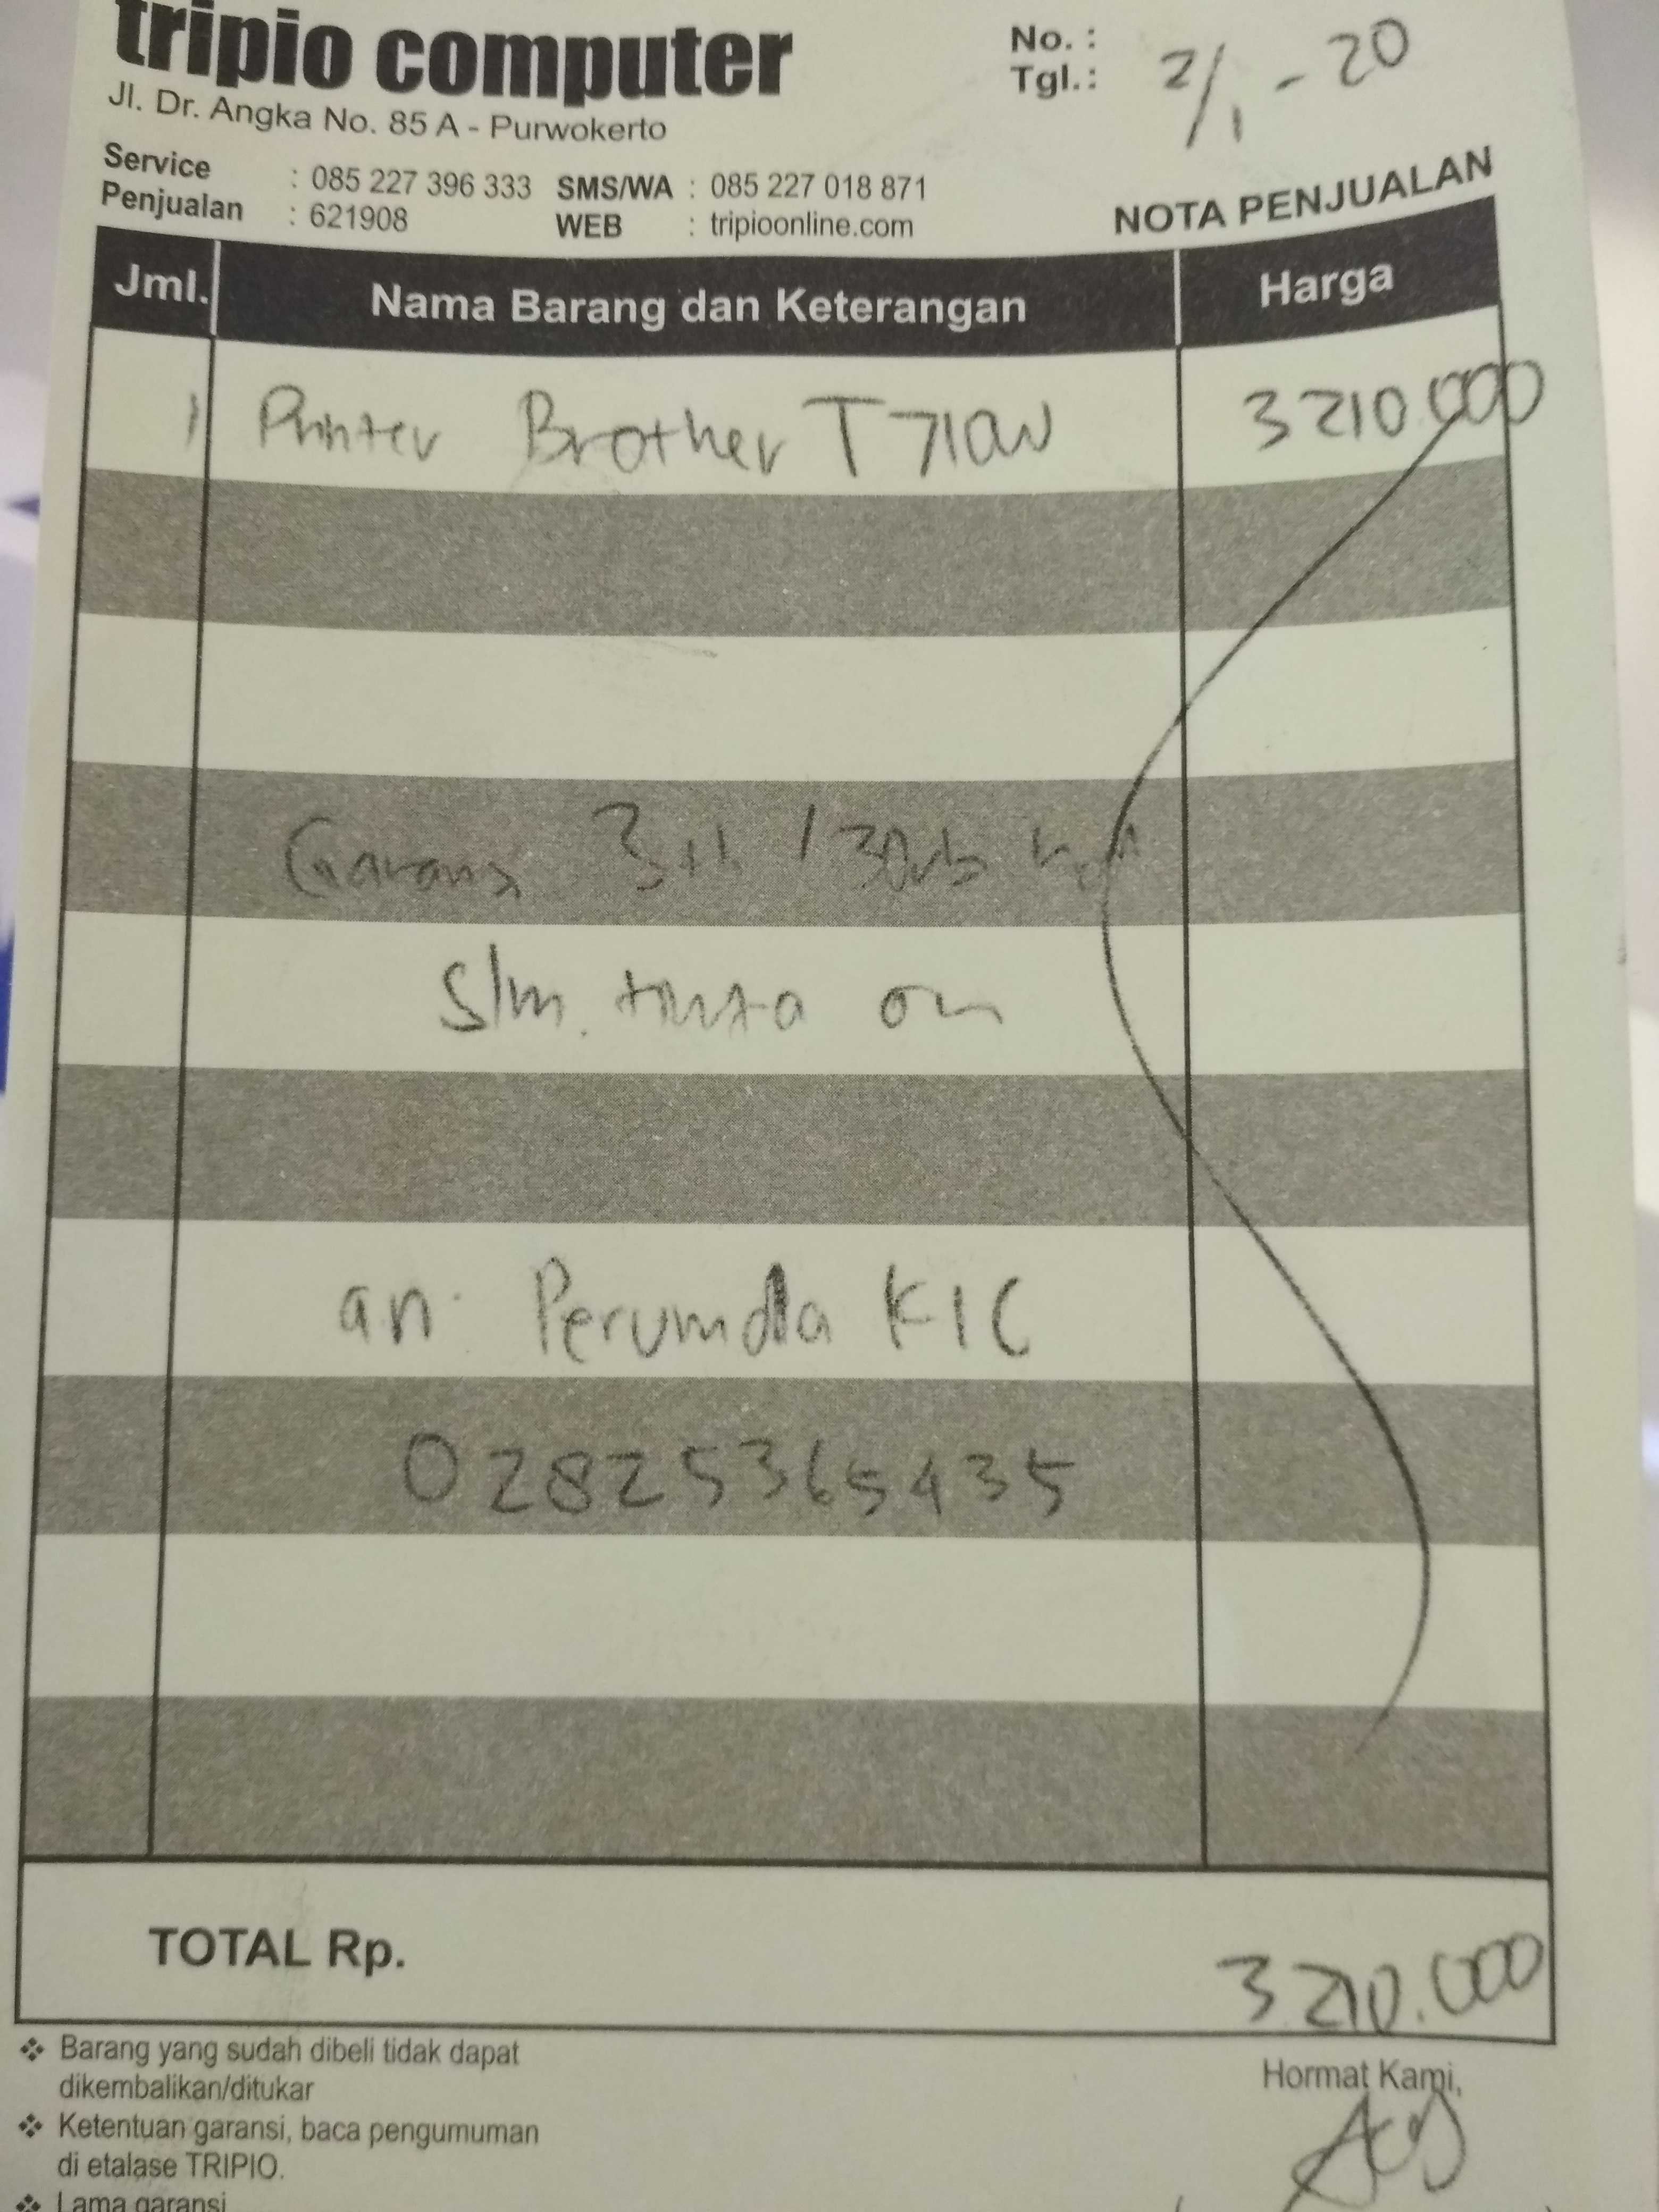 tripio computer
Jl. Dr. Angka No. 85 A - Purwokerto
No. :
Tgl. : 2/1 - 20
Service : 085 227 396 333 SMS/WA : 085 227 018 871
Penjualan : 621908 WEB : tripioonline.com
NOTA PENJUALAN
Jml. Nama Barang dan Keterangan Harga
1 Printer Brother T710W 3210.000
Garansi 3th / 30rb
Slm. tinta ori
an. Perumda KIC
02825365435
TOTAL Rp. 3.210.000
❖ Barang yang sudah dibeli tidak dapat
dikembalikan/ditukar
❖ Ketentuan garansi, baca pengumuman
di etalase TRIPIO.
❖ Lama garansi
Hormat Kami,